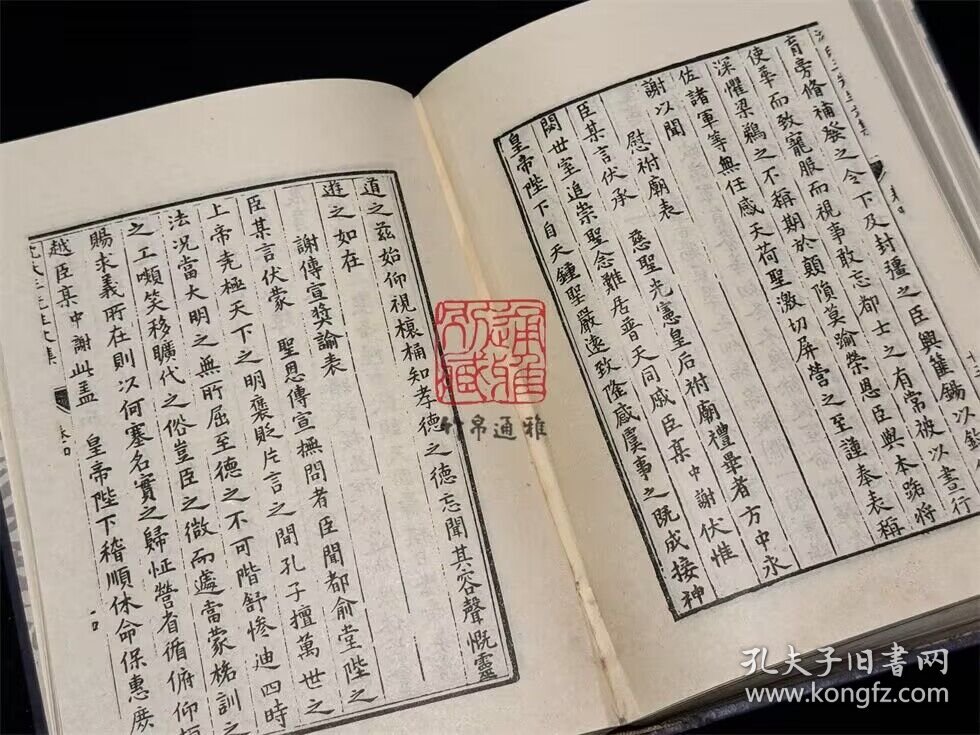 育旁脩補發之令下及封疆之臣興舊錫以
使華而致寵服而視事敢忘卻士之有常被以書行
深懼梁鵜之不稱期於顛隕莫踰榮恩臣與本路將
佐諸軍等無任感天荷聖激切屏營之至謹奉表稱
謝以聞
慰祔廟表
臣某言伏承 慈聖光憲皇后祔廟禮畢者方中永
閟世室追崇聖念難居普天同戚臣某中謝伏惟
皇帝陛下自天鍾聖嚴遠致隆感虞事之既成接神
道之茲始仰視榱桷知孝德之德忘聞其容聲慨靈
遊之如在
謝傳宣奬諭表
臣某言伏蒙 聖恩傳宣撫問者臣聞都俞堂陛之
上帝克極天下之明褒貶片言之間孔子擅萬世之
法況當大明之無所屈至德之不可階舒慘迪四時
之工嚬笑移曠代之俗豈臣之微而處當蒙格訓之
賜求義所在則以何塞名實之歸怔營者循俯仰
越臣某中謝此盖 皇帝陛下稽順休命保惠庶
通雅所藏
竹帛通雅
孔夫子旧書网
www.kongfz.com